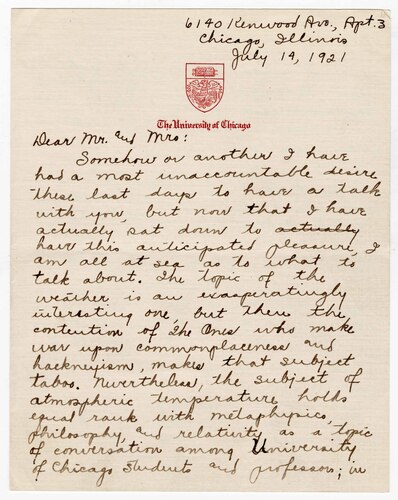 6140 Kenwood Ave., Apt. 3
Chicago, Illinois
July 14, 1921
The University of Chicago
Dear Mr. and Mrs:
Somehow or another I have
had a most unaccountable desire
these last days to have a talk
with you, but now that I have
actually sat down to actually
have this anticipated pleasure, I
am all at sea as to what to
talk about. The topic of the
weather is an exasperatingly
interesting one, but then the
contention of The Ones who make
war upon commonplaceness and
hackneyism, makes that subject
taboo. Nevertheless, the subject of
atmospheric temperature holds
equal rank with metaphysics,
philosophy, and relativity as a topic
of conversation among University
of Chicago students and professors; in